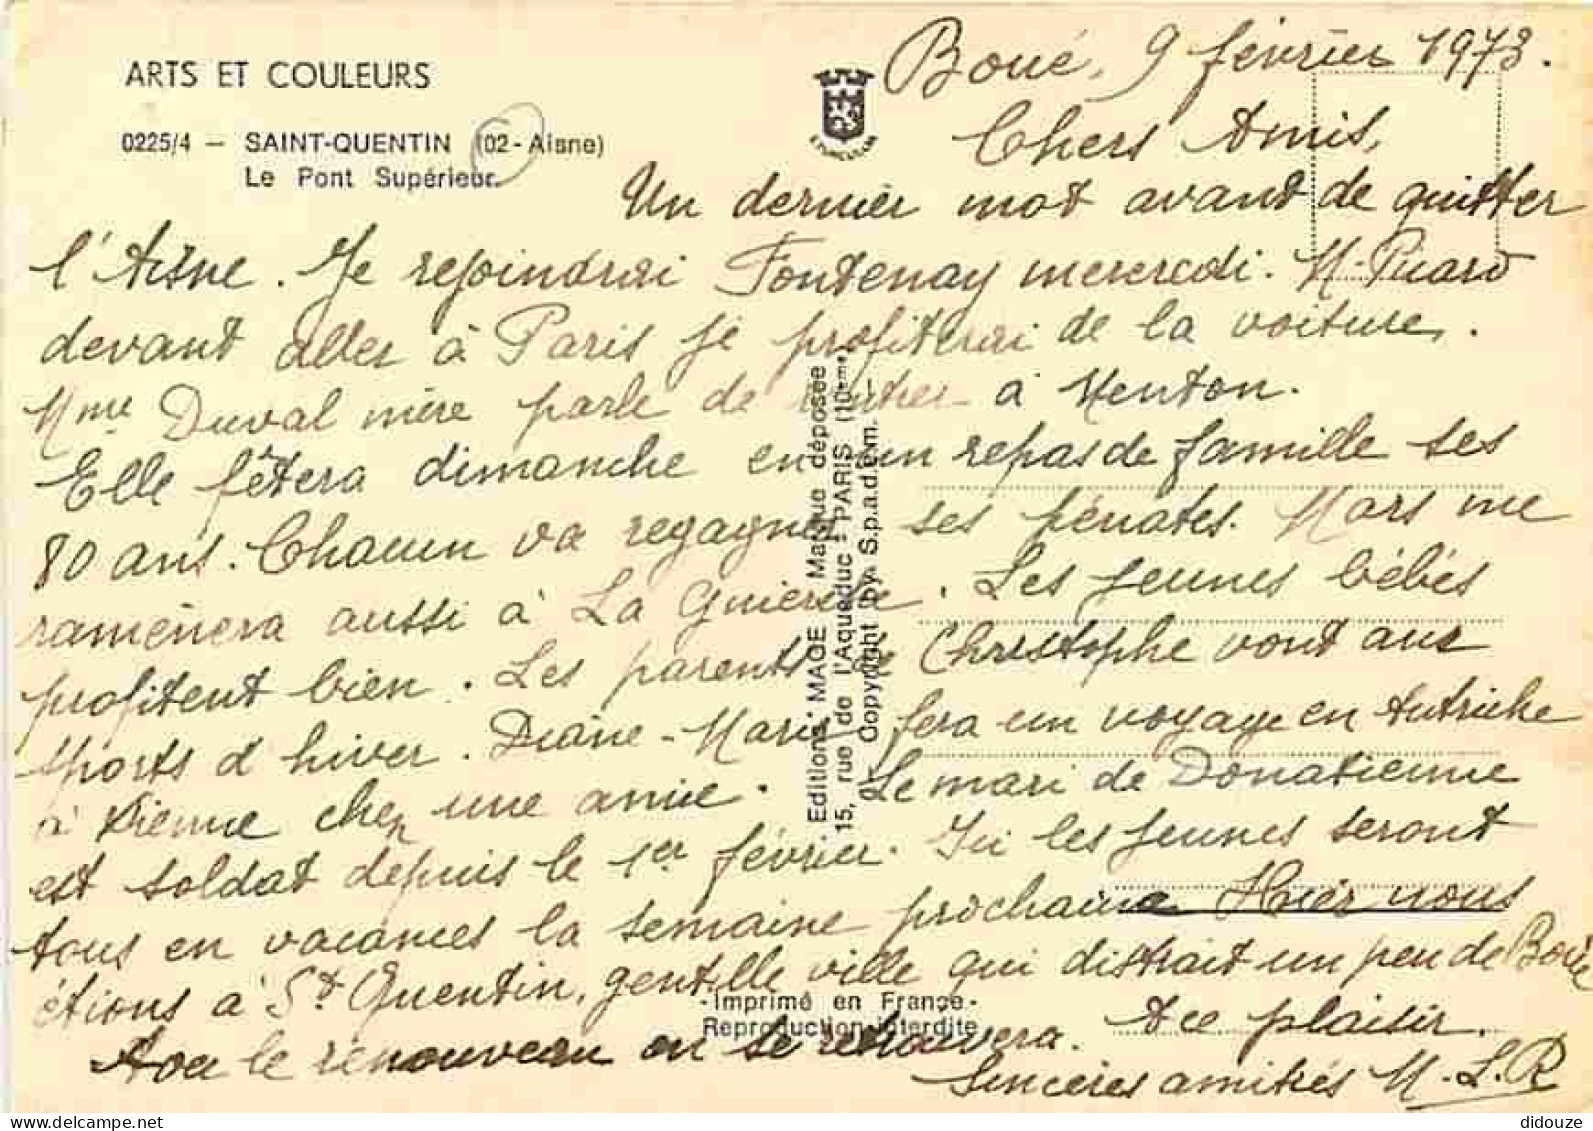 ARTS ET COULEURS
0225/4 - SAINT-QUENTIN (02-Aisne)
Le Pont Supérieur.
Boué, 9 février 1973.
Chers Amis,
Un dernier mot avant de quitter
l'Aisne. Je rejoindrai Fontenay mercredi. M. Picard
devant aller à Paris je profiterai de la voiture.
Mme Duval mère parle de à Menton.
Elle fêtera dimanche en un repas de famille ses
80 ans. Chacun va regagner ses pénates. Mars me
ramènera aussi à La Guierche. Les jeunes bébés
profitent bien. Les parents de Christophe vont aux
sports d'hiver. Diane-Marie fera un voyage en Autriche
à Vienne chez une amie. Le mari de Donatienne
est soldat depuis le 1er février. Ici les jeunes seront
tous en vacances la semaine prochaine Hier nous
étions à St Quentin, gentille ville qui distrait un peu de Boué
Avec le renouveau on se retrouvera. Avec plaisir.
Sincères amitiés M-L.R
Editions "MAGE" Marque déposée
15, rue de l'Aqueduc - PARIS (10ème)
Copyright by S.p.a.d.e.m.
-Imprimé en France-
Reproduction interdite
didouze